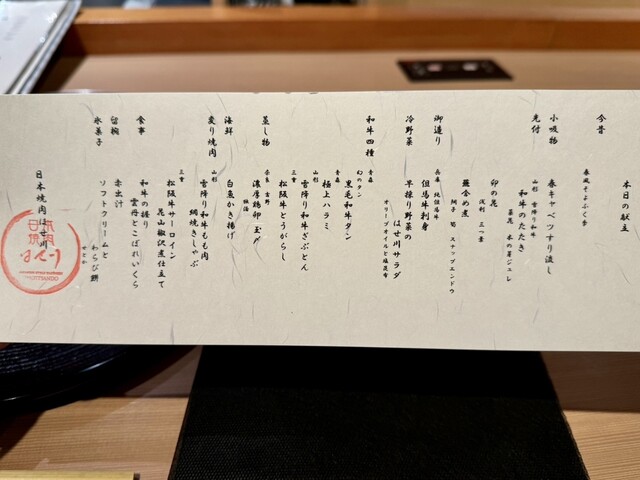 本日の献立
今昔
春風そよふく季
小吸物
春キャベツすり流し
先付
山形 雪降り和牛
和牛のたたき
菜花 木の芽ジュレ
卯の花
浅利 三つ葉
蕪含め煮
スナップエンドウ
御造り
兵庫 純但馬牛
但馬牛刺身
冷野菜
早採り野菜の
はせ川サラダ
オリーブオイルと塩昆布
和牛四種
青森
幻のタン
黒毛和牛タン
青森
極上ハラミ
山形
雪降り和牛ざぶとん
三重
松阪牛とうがらし
蒸し物
奈良 吉野
濃厚鶏卵 玉〆
海鮮
白魚かき揚げ
炙り焼肉
山形
雪降り和牛もも肉
網焼きしゃぶ
三重
松阪牛サーロイン
花山椒沢煮仕立て
食事
和牛の握り
雲丹とこぼれいくら
留椀
赤出汁
氷菓子
ソフトクリームと
わらび餅
せとか
日本焼肉はせ川